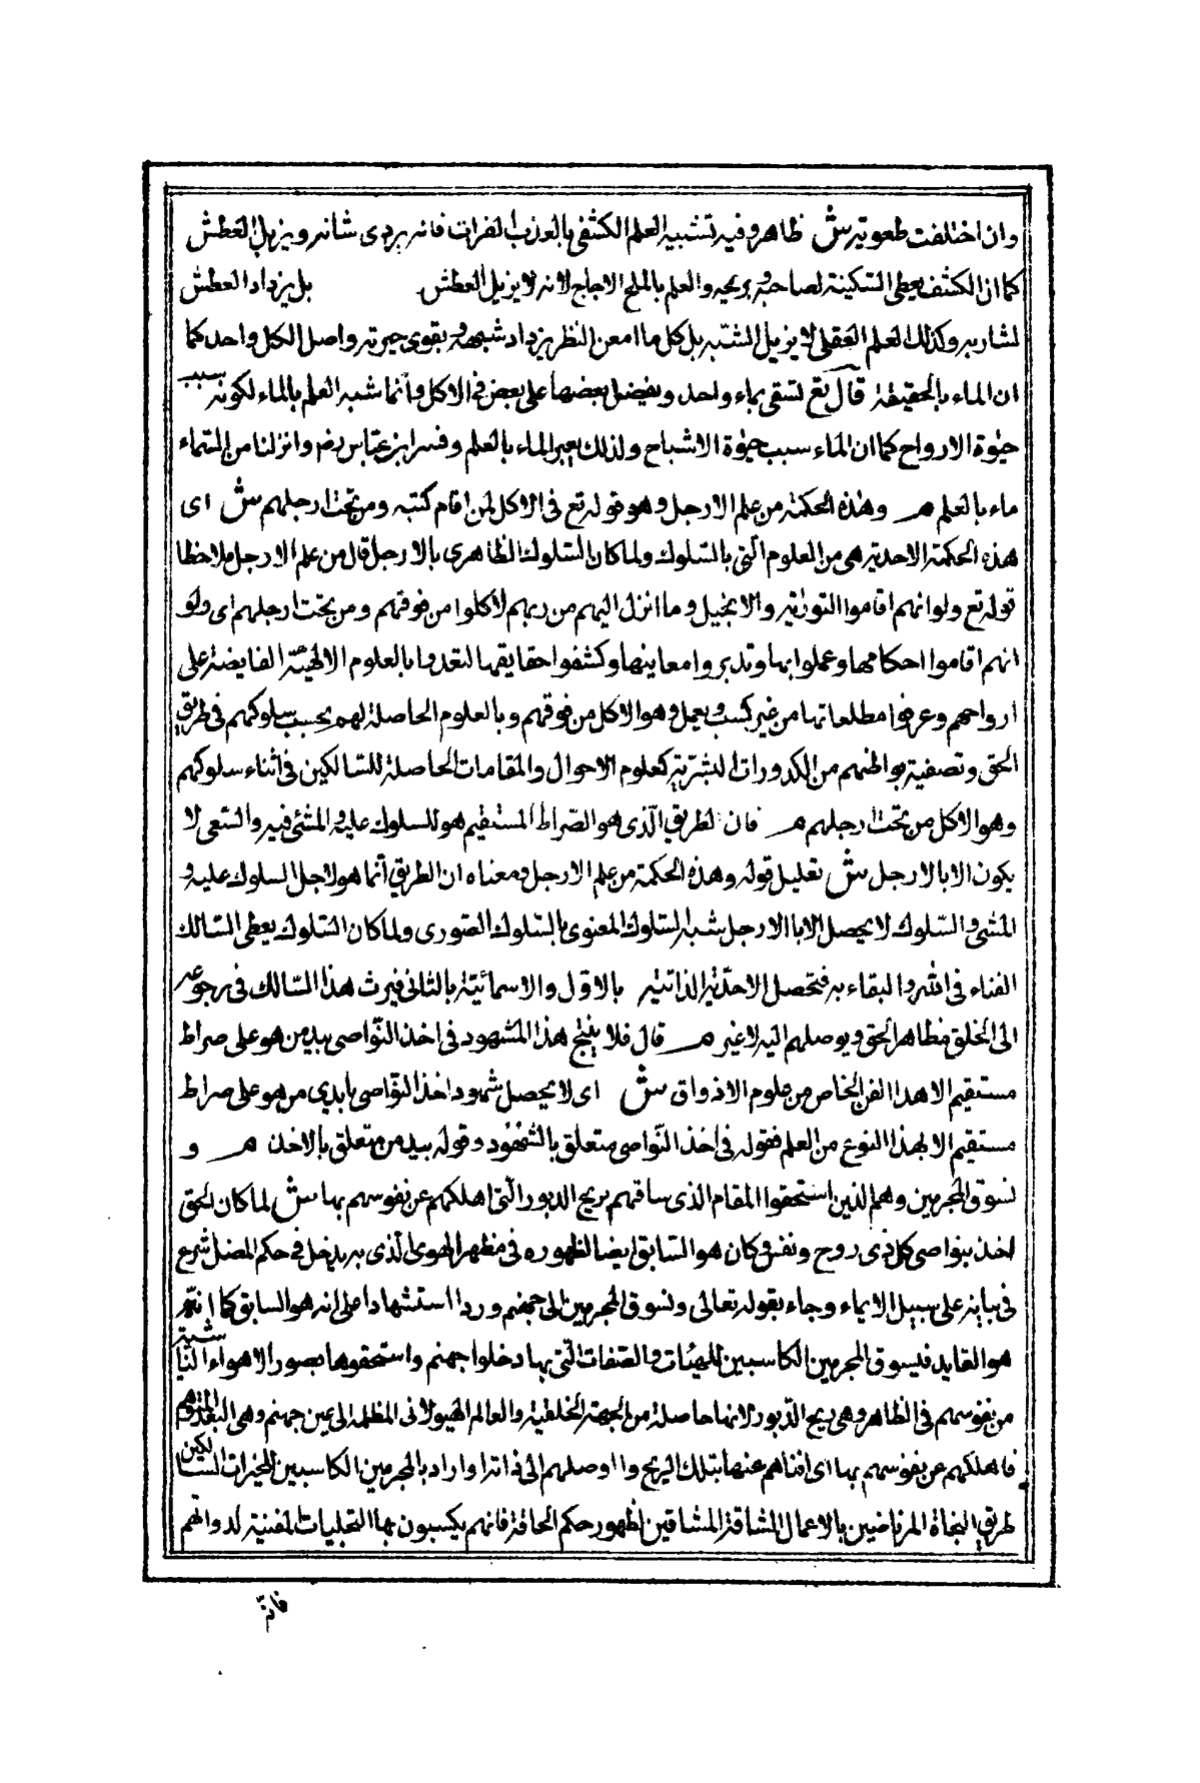 وان اختلفت طعومه ش ظاهر وفيه تشبيه العلم الكشفى بالعذب الفرات فانه يروى شاربه ويزيل العطش
كما ان الكشف يعطى السكينة لصاحبه ويريحه والعلم بالملح الاجاج لانه لا يزيل العطش بل يزداد العطش
لشاربه وكذلك العلم العقلى لا يزيل الشبه بل كل ما امعن النظر يزداد شبهه ويقوى حيرته واصل الكل واحد كما
ان الماء بالحقيقة قال تع تسقى بماء واحد ونفضل بعضها على بعض فى الاكل وانما شبه العلم بالماء لكونه سبب
حيوة الارواح كما ان الماء سبب حيوة الاشباح ولذلك يعبر الماء بالعلم وفسر ابن عباس رض وانزلنا من السماء
ماء بالعلم م وهذه الحكمة من علم الارجل وهو قوله تع فى الاكل لمن اقام كتبه ومن تحت ارجلهم ش اى
هذه الحكمة الاحدية هى من العلوم التى بالسلوك ولما كان السلوك الظاهرى بالارجل قال من علم الارجل ملاحظا
قوله تع ولو انهم اقاموا التورٰية والانجيل وما انزل اليهم من ربهم لاكلوا من فوقهم ومن تحت ارجلهم اى ولو
انهم اقاموا احكامها وعملوا بها وتدبروا معاينها وكشفوا حقايقها لتغدوا بالعلوم الالهية الفايضة على
ارواحهم وعرفوا مطلعاتها من غير كسب وبعمل وهو الاكل من فوقهم وبالعلوم الحاصلة لهم بحسب سلوكهم فى طريق
الحق وتصفية بواطنهم من الكدورات البشرية كعلوم الاحوال والمقامات الحاصلة للسالكين فى اثناء سلوكهم
وهو الاكل من تحت ارجلهم م فان الطريق الذى هو الصراط المستقيم هو للسلوك عليه والمشى فيه والسعى لا
يكون الا بالارجل ش تعليل قوله وهذه الحكمة من علم الارجل ومعناه ان الطريق انما هو لاجل السلوك عليه و
المشى والسلوك لا يحصل الا باالارجل شبه السلوك المعنوى بالسلوك الصورى ولما كان السلوك يعطى السالك
الفناء فى الله والبقاء به فتحصل الاحدية الذاتية بالاول والاسمائية بالثانى فيرث هذا السالك فى رجوعه
الى الخلق مظاهر الحق ويوصلهم اليه لا غير م قال فلا ينتج هذا المشهود فى اخذ النواصى بيد من هو على صراط
مستقيم الا هذا الفن الخاص من علوم الاذواق ش اى لا يحصل شهود اخذ النواصى بايدى من هو على صراط
مستقيم الا بهذا النوع من العلم فقوله فى اخذ النواصى متعلق بالشهود وقوله بيد من متعلق بالاخذ م و
نسوق المجرمين وهم الذين استحقوا المقام الذى ساقهم بريح الدبور التى اهلكهم عن نفوسهم بها ش لما كان الحق
اخذ بنواصى كل ذى روح ونفس وكان هو السابق ايضا لظهوره فى مظهر الهوى الذى به يدخل فى حكم المضل شرع
فى بيانه على سبيل الايماء وجاء بقوله تعالى ونسوق المجرمين الى جهنم وردا استشهادا على انه هو السابق كما انه
هو القايد فيسوق المجرمين الكاسبين للهيئات والصفات التى بها دخلوا جهنم واستحقوها بصور الاهواء الناشية
من نفوسهم فى الظاهر وهى ريح الدبور لانها حاصلة من الجهة الخلفية والعالم الهيولانى المظلمة الى عين جهنم وهى البعد المتوهم
فاهلكهم عن نفوسهم بها اى افناهم عنها بتلك الريح واوصلهم الى ذاته او اراد بالمجرمين الكاسبين للخيرات السالكين
طريق النجاة المرتاضين بالاعمال الشاقة المشاقين لظهور حكم الحاقة فانهم يكسبون بها التجليات المفنية لذواتهم
فانه